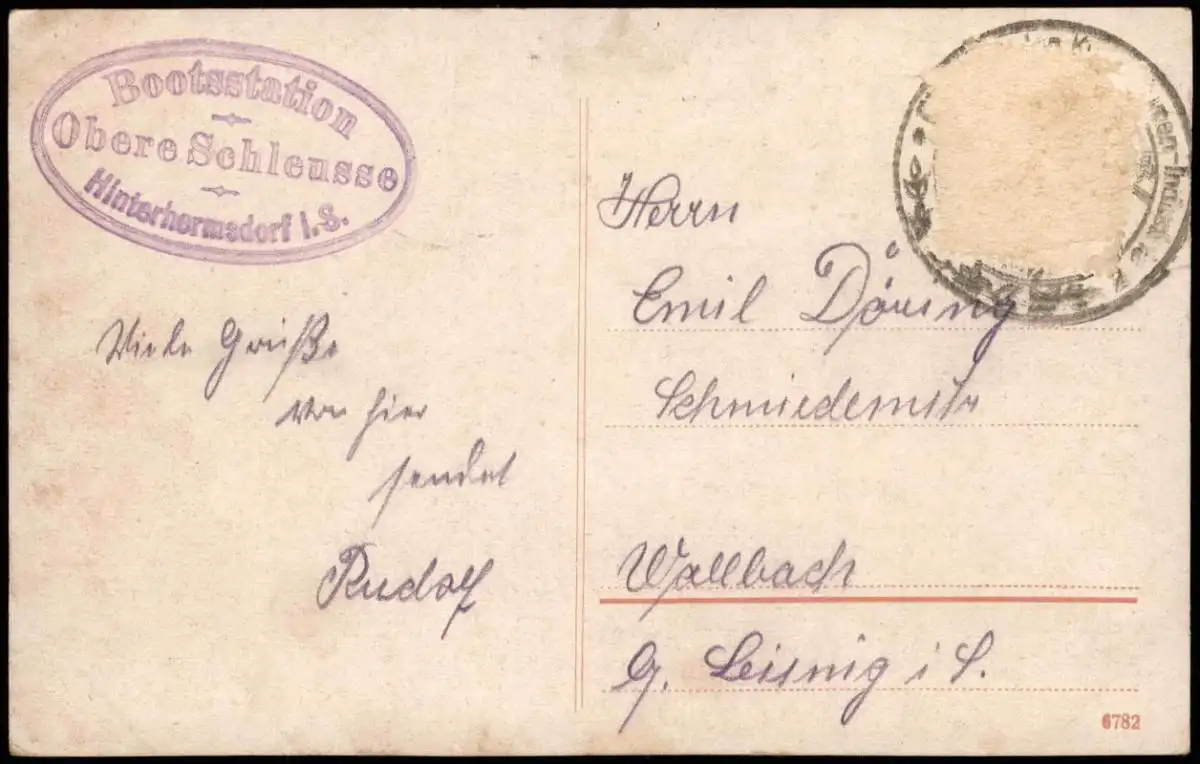 Bootsstation
Obere Schleusse
Hinterhermsdorf i. S.
Viele Grüße
von hier
sendet
Rudolf
Herrn
Emil Döring
Schmiedemstr
Wallbach
b. Leisnig i S.
6782